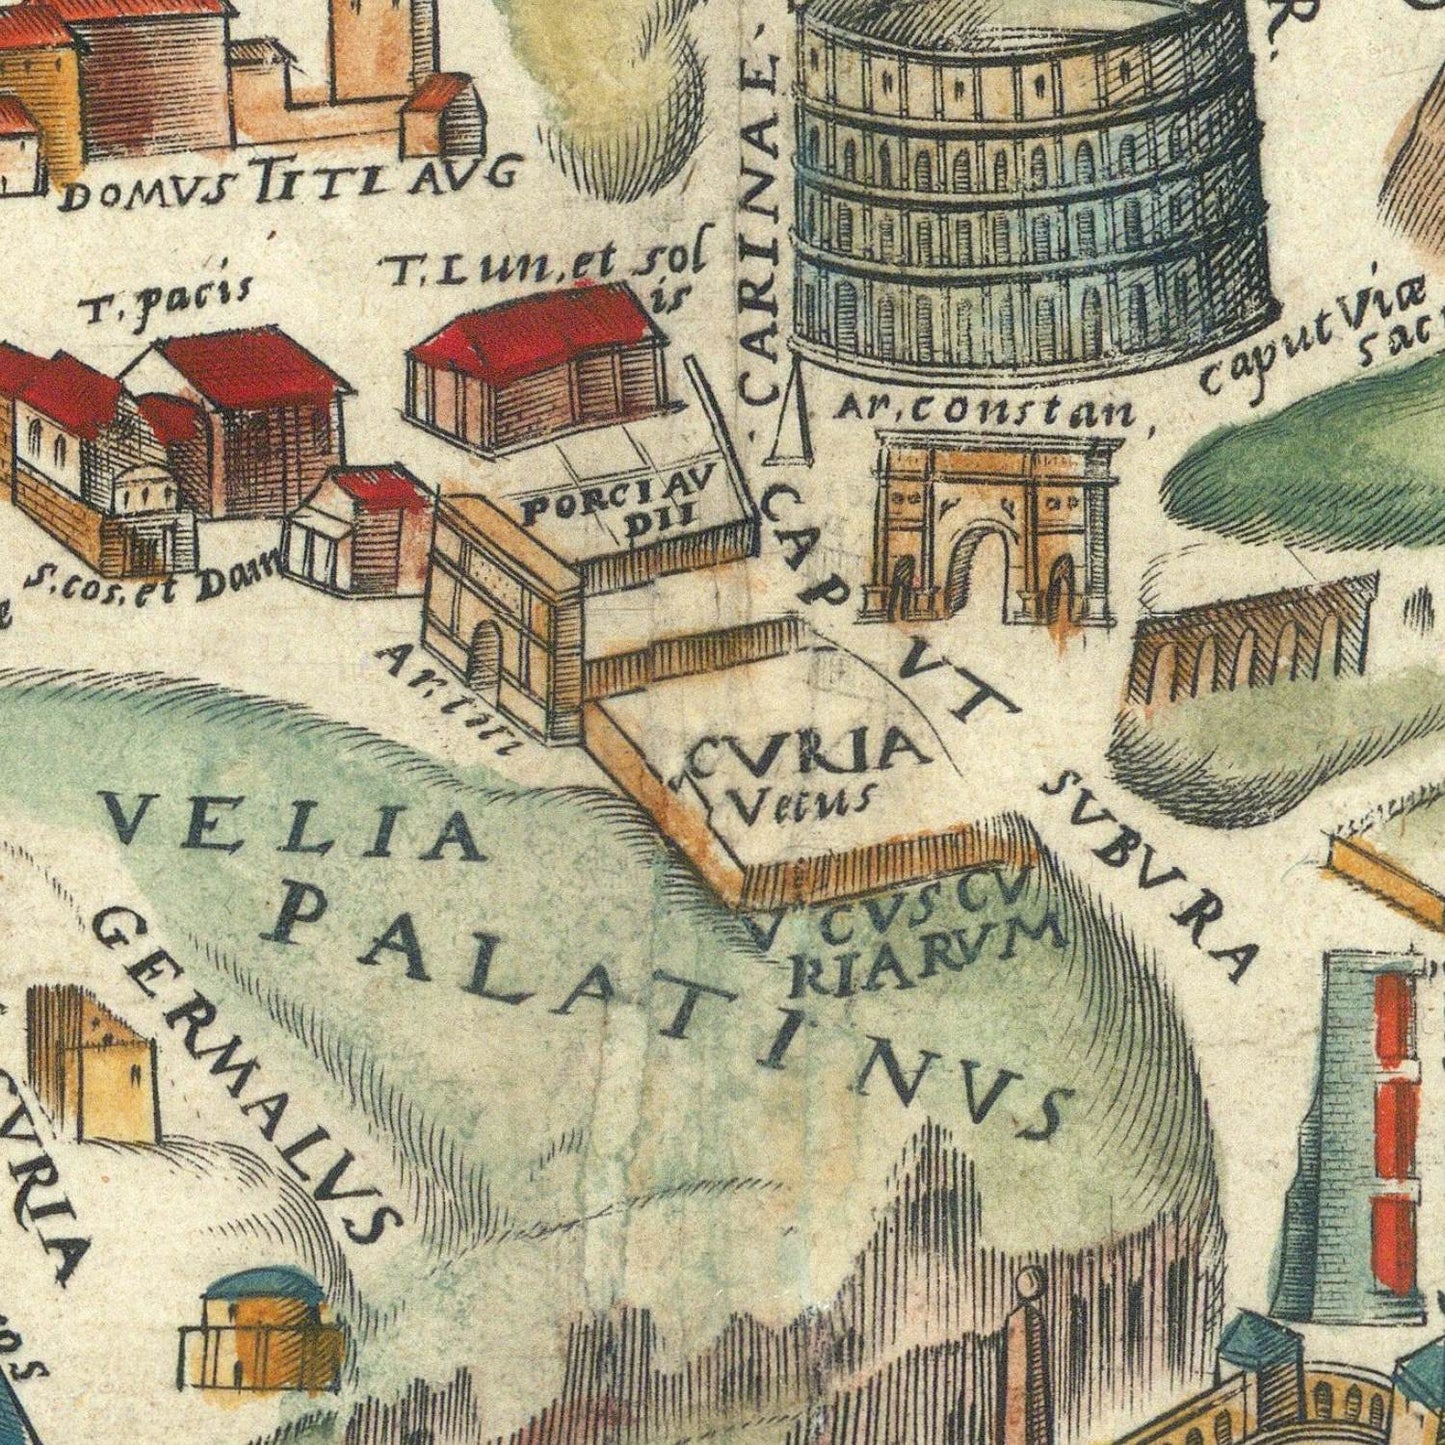 DOMVS TITI AVG
T. Lun. et sol
is
T. pacis
CARINAE.
caput Viæ
sac
Ar. constan,
PORCI AV
DII
S. cos. et Dam
Ar. titi
CAPVT
SVBVRA
CVRIA
Vetus
VICVS CV
RIARVM
VELIA
PALATINVS
GERMALVS
CVRIA